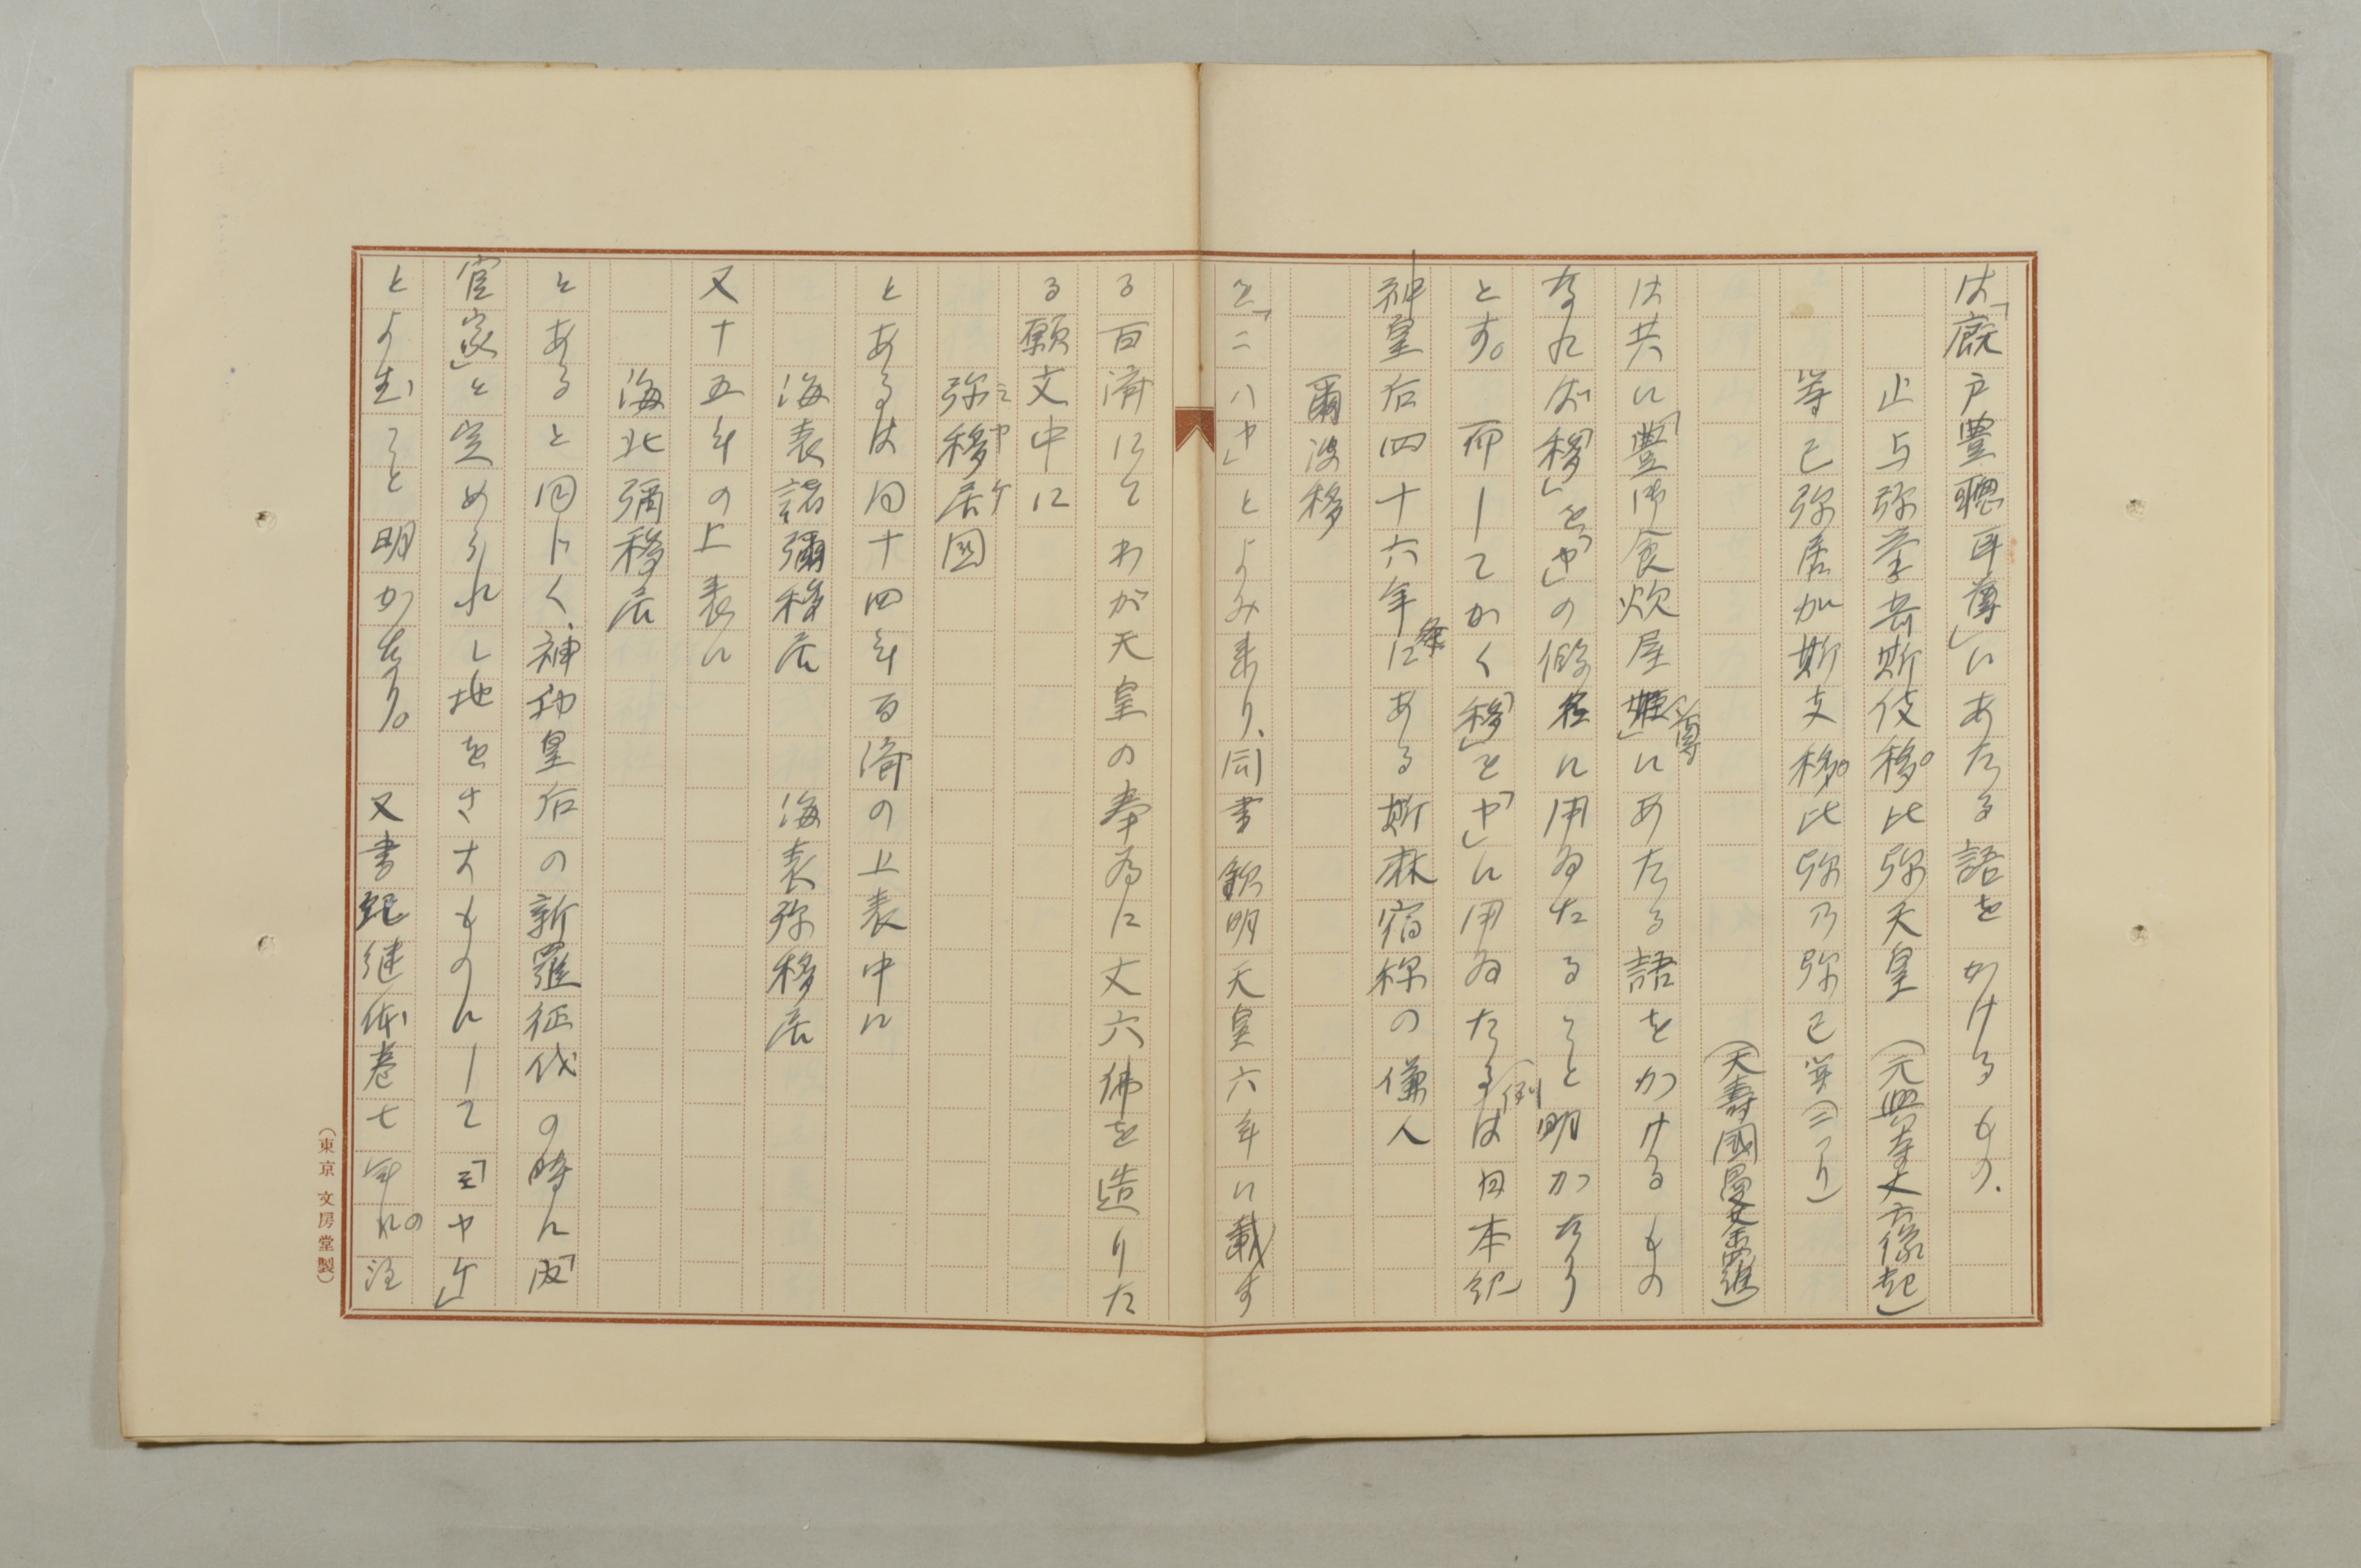 は「廐戸豊聰耳尊」にあたる語をかけるもの、
止与弥挙奇斯伎移比弥天皇 (元興寺丈六像起)
等已弥居加斯支移比弥乃弥已等(二つり)
(天壽國曼荼羅)
は共に「豊御食炊屋姫尊」にあたる語をかけるもの
なれば「移」を「ヤ」の假名に用ゐたること明かなり
とす。而してかく「移」を「ヤ」に用ゐたる例は日本紀
神皇后四十六年條にある斯麻宿禰の傔人
爾波移
を「ニハヤ」とよみ来り、同書欽明天皇六年に載す
る百済にてわが天皇の奉為に丈六佛を造りた
る願文中に
弥移居國
ミヤケ
とあるは同十四年百済の上表中に
海表諸彌移居 海表弥移居
又十五年の上表に
海北彌移居
とあると同じく、神功皇后の新羅征伐の時に「内
官家」と定められし地をさすものにして「ミヤケ」
とよむこと明かなり。 又書紀継体巻七年の注
(東京 文房堂製)